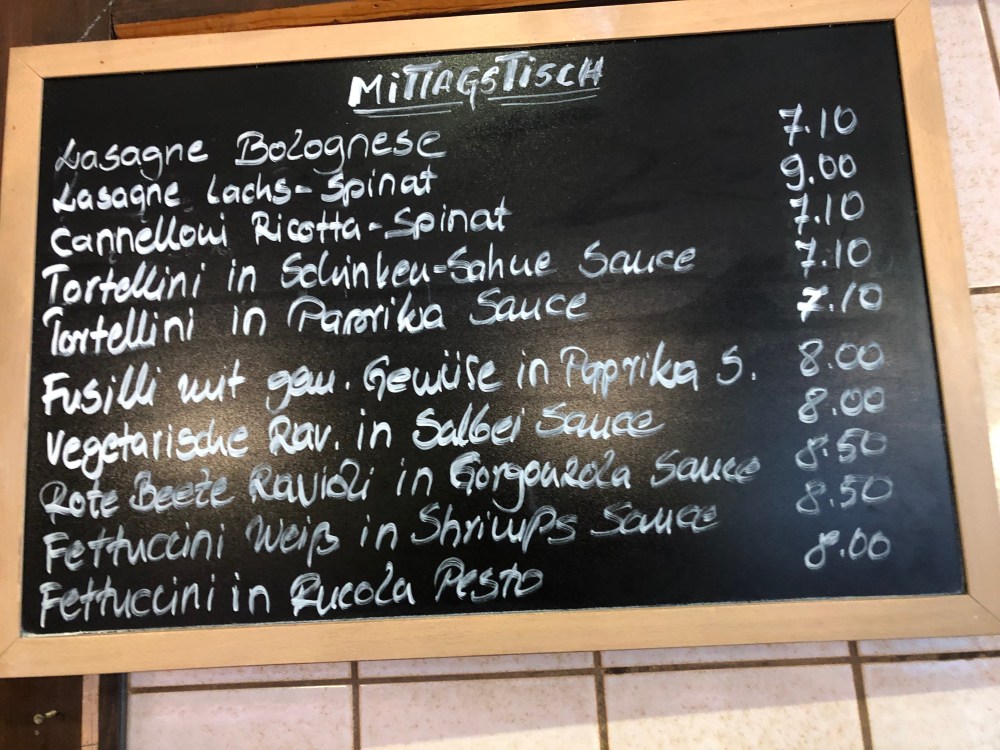 MiTTAGSTiSCH
Lasagne Bolognese 7.10
Lasagne Lachs-Spinat 9.00
Cannelloni Ricotta-Spinat 7.10
Tortellini in Schinken-Sahne Sauce 7.10
Tortellini in Paprika Sauce 7.10
Fusilli mit gem. Gemüse in Paprika S. 8.00
Vegetarische Rav. in Salbei Sauce 8.00
Rote Beete Ravioli in Gorgonzola Sauce 8.50
Fettuccini Weiß in Shrimps Sauce 8.50
Fettuccini in Rucola Pesto 8.00